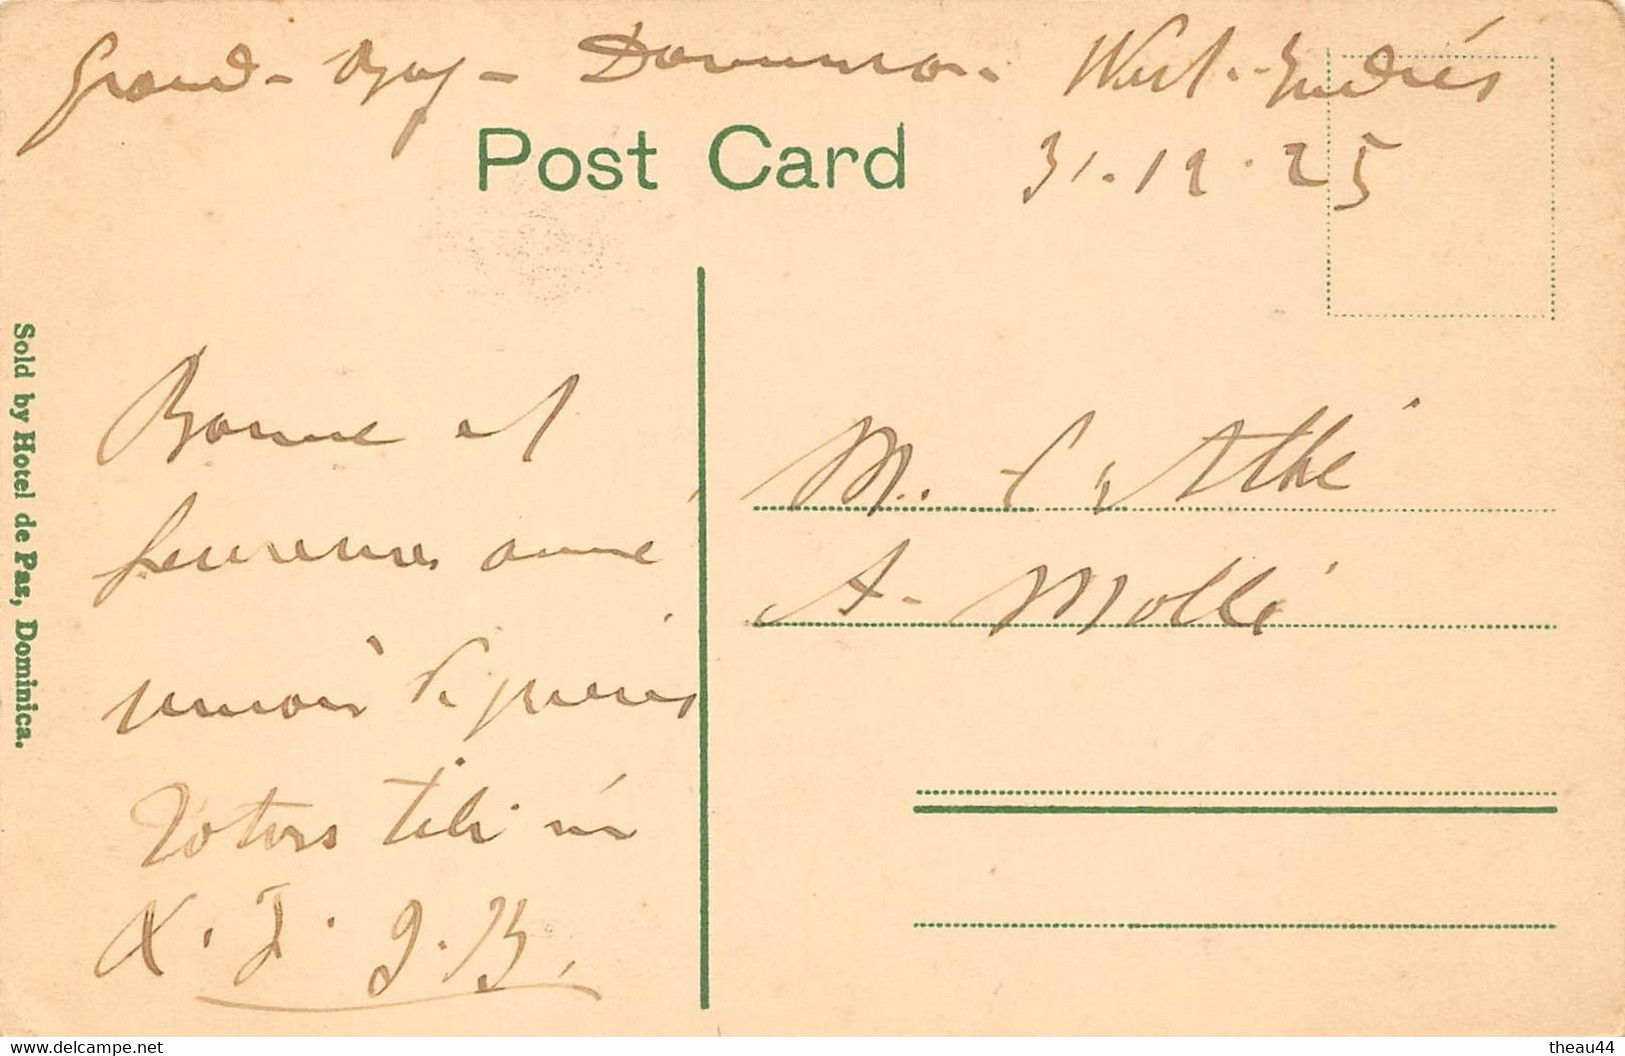 Grand-Bay - Dominica. West-Indies
Post Card
31.12.25
Sold by Hotel de Pas, Dominica.
Bonne et
heureuse année
union de prières
Totus tibi in
X. J. J. B.
M. l'Abbé
A. Mollé
www.delcampe.net
theau44